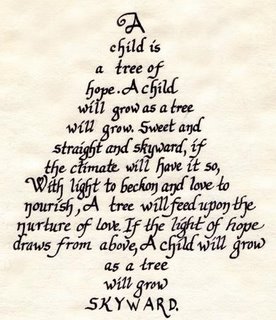 A
child is
a tree of
hope. A child
will grow as a tree
will grow. Sweet and
straight and skyward, if
the climate will have it so,
With light to beckon and love to
nourish, A tree will feed upon the
nurture of love. If the light of hope
draws from above, A child will grow
as a tree
will grow
SKYWARD.